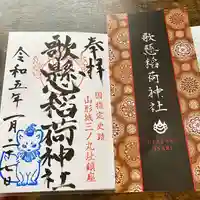 奉拝
国指定史跡
山形城三ノ丸社鎮座
歌懸稲荷神社
令和五年一月二十七日
歌懸稲荷神社